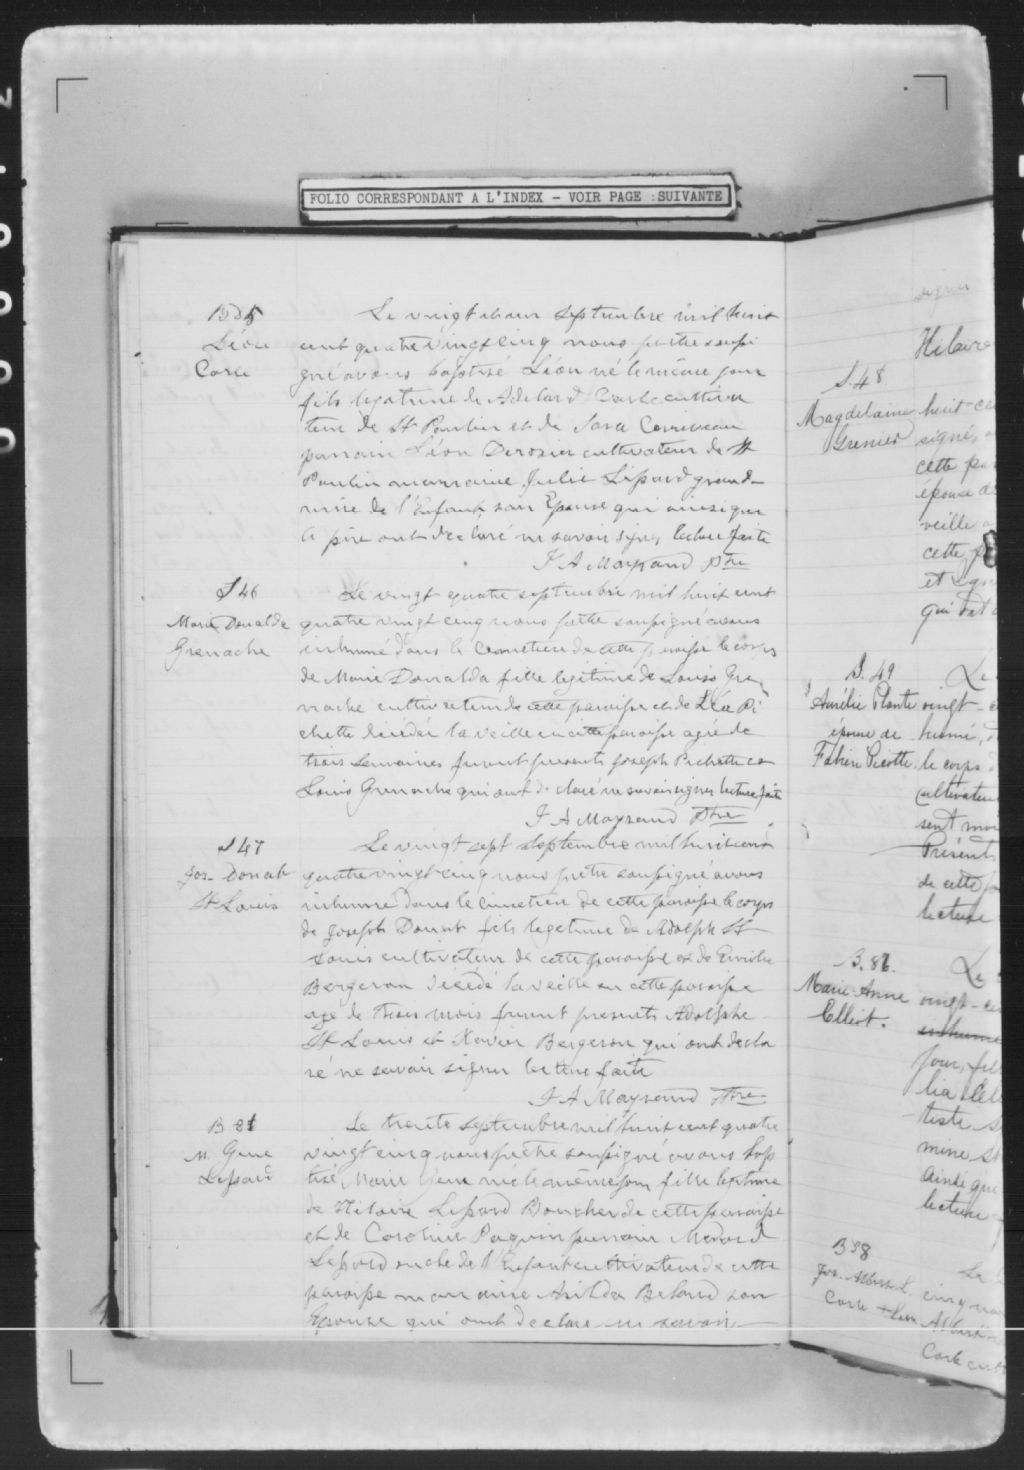 FOLIO CORRESPONDANT A L'INDEX - VOIR PAGE :SUIVANTE
B 85
Léon
Carle
Le vingt deux septembre mil huit
cent quatre vingt cinq nous prêtre soussi
gné avons baptisé Léon né le même jour
fils legitime de Adelard Carle cultiva
teur de St Paulin et de Sara Corriveau
parrain Léon Derosier cultivateur de St
Paulin marraine Julie Lessard grand-
mère de l'Enfant, son Epouse qui ainsi que
le père ont declaré ne savoir signer lecture faite
J A Mayrand Ptre
S 46
Marie Donalda
Grenache
Le vingt quatre septembre mil huit cent
quatre vingt cinq nous prêtre soussigné avons
inhumé dans le cemetiere de cette paroisse le corps
de Marie Donalda fille legitime de Louis Gre
nache cultivateur de cette paroisse et de Léa Pi
chette décédée la veille en cette paroisse agée de
trois semaines furent presents Joseph Pichette et
Louis Grenache qui ont declaré ne savoir signer lecture faite
J A Mayrand Ptre
S 47
Jos- Donat
St Louis
Le vingt sept septembre mil huit cent
quatre vingt cinq nous prêtre soussigné avons
inhumé dans le cimetiere de cette paroisse le corps
de Joseph Donat fils legetime de Adolph St
Louis cultivateur de cette paroisse et de Emélie
Bergeron décédé la veille en cette paroisse
agé de trois mois furent presents Adolphe
St Louis et Xavier Bergeron qui ont decla
ré ne savoir signer lecture faite
J A Mayrand Ptre
B 86
M. Gene
Lessard
Le trente septembre mil huit cent quatre
vingt cinq nous prêtre soussigné avons bap
tisé Marie Gene née le même jour fille legitime
de Hilaire Lessard Boucher de cette paroisse
et de Caroline Paquin parrain Medard
Lessard oncle de l'Enfant cultivateur de cette
paroisse marraine Asilda Beland son
Epouse qui ont declaré ne savoir
signer
Hilaire
S. 48
Magdelaine
Grenier
huit ce
signé,
cette pa
épouse de
veille
cette p
et sign
qui ont
S. 49
Aurélie Plante
épouse de
Fabien Picotte
Le
vingt-
humé,
le corps
cultivateur
sent
Présents
de cette
lecture
B. 86.
Marie-Anne
Elliot.
Le
vingt-ci
inhume
jour, fil
lia Ell
tiste
mine St
ainsi que
lecture
B 88
Jos. Albert L.
Carle
Le
cinq nou
Albert
Carle cult